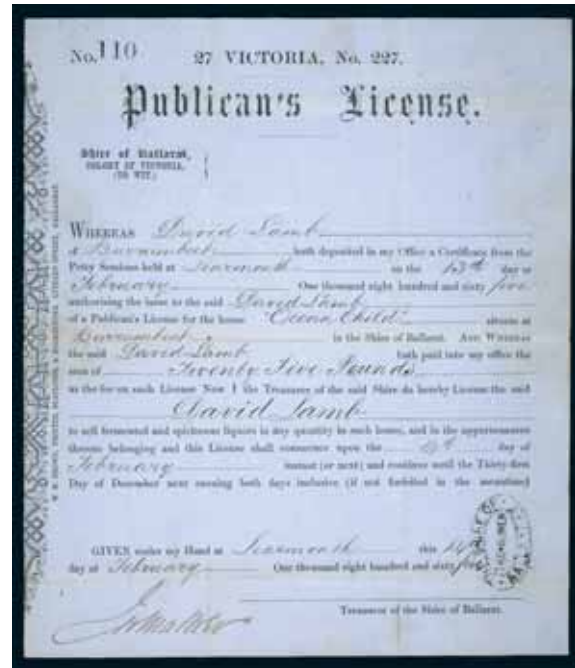 No. 110 27 VICTORIA, No. 227.
Publican's License.
Shire of Ballarat,
COLONY OF VICTORIA,
(TO WIT.)
WHEREAS David Lamb
hath deposited in my Office a Certificate from the
Petty Sessions held at Learmonth on the 13th day of
February One thousand eight hundred and sixty five
authorising the issue to the said David Lamb
of a Publican's License for the house "Ocean Child" situate at
in the Shire of Ballarat. AND WHEREAS
the said David Lamb hath paid into my office the
sum of Twenty Five Pounds
as the fee on such License Now I the Treasurer of the said Shire do hereby License the said
David Lamb
to sell fermented and spirituous liquors in any quantity in such house, and in the appurtenances
thereto belonging and this License shall commence upon the day of
February instant (or next) and continue until the Thirty-first
Day of December next ensuing both days inclusive (if not forfeited in the meantime)
GIVEN under my Hand at Learmonth this 14th
day of February One thousand eight hundred and sixty five
Treasurer of the Shire of Ballarat.